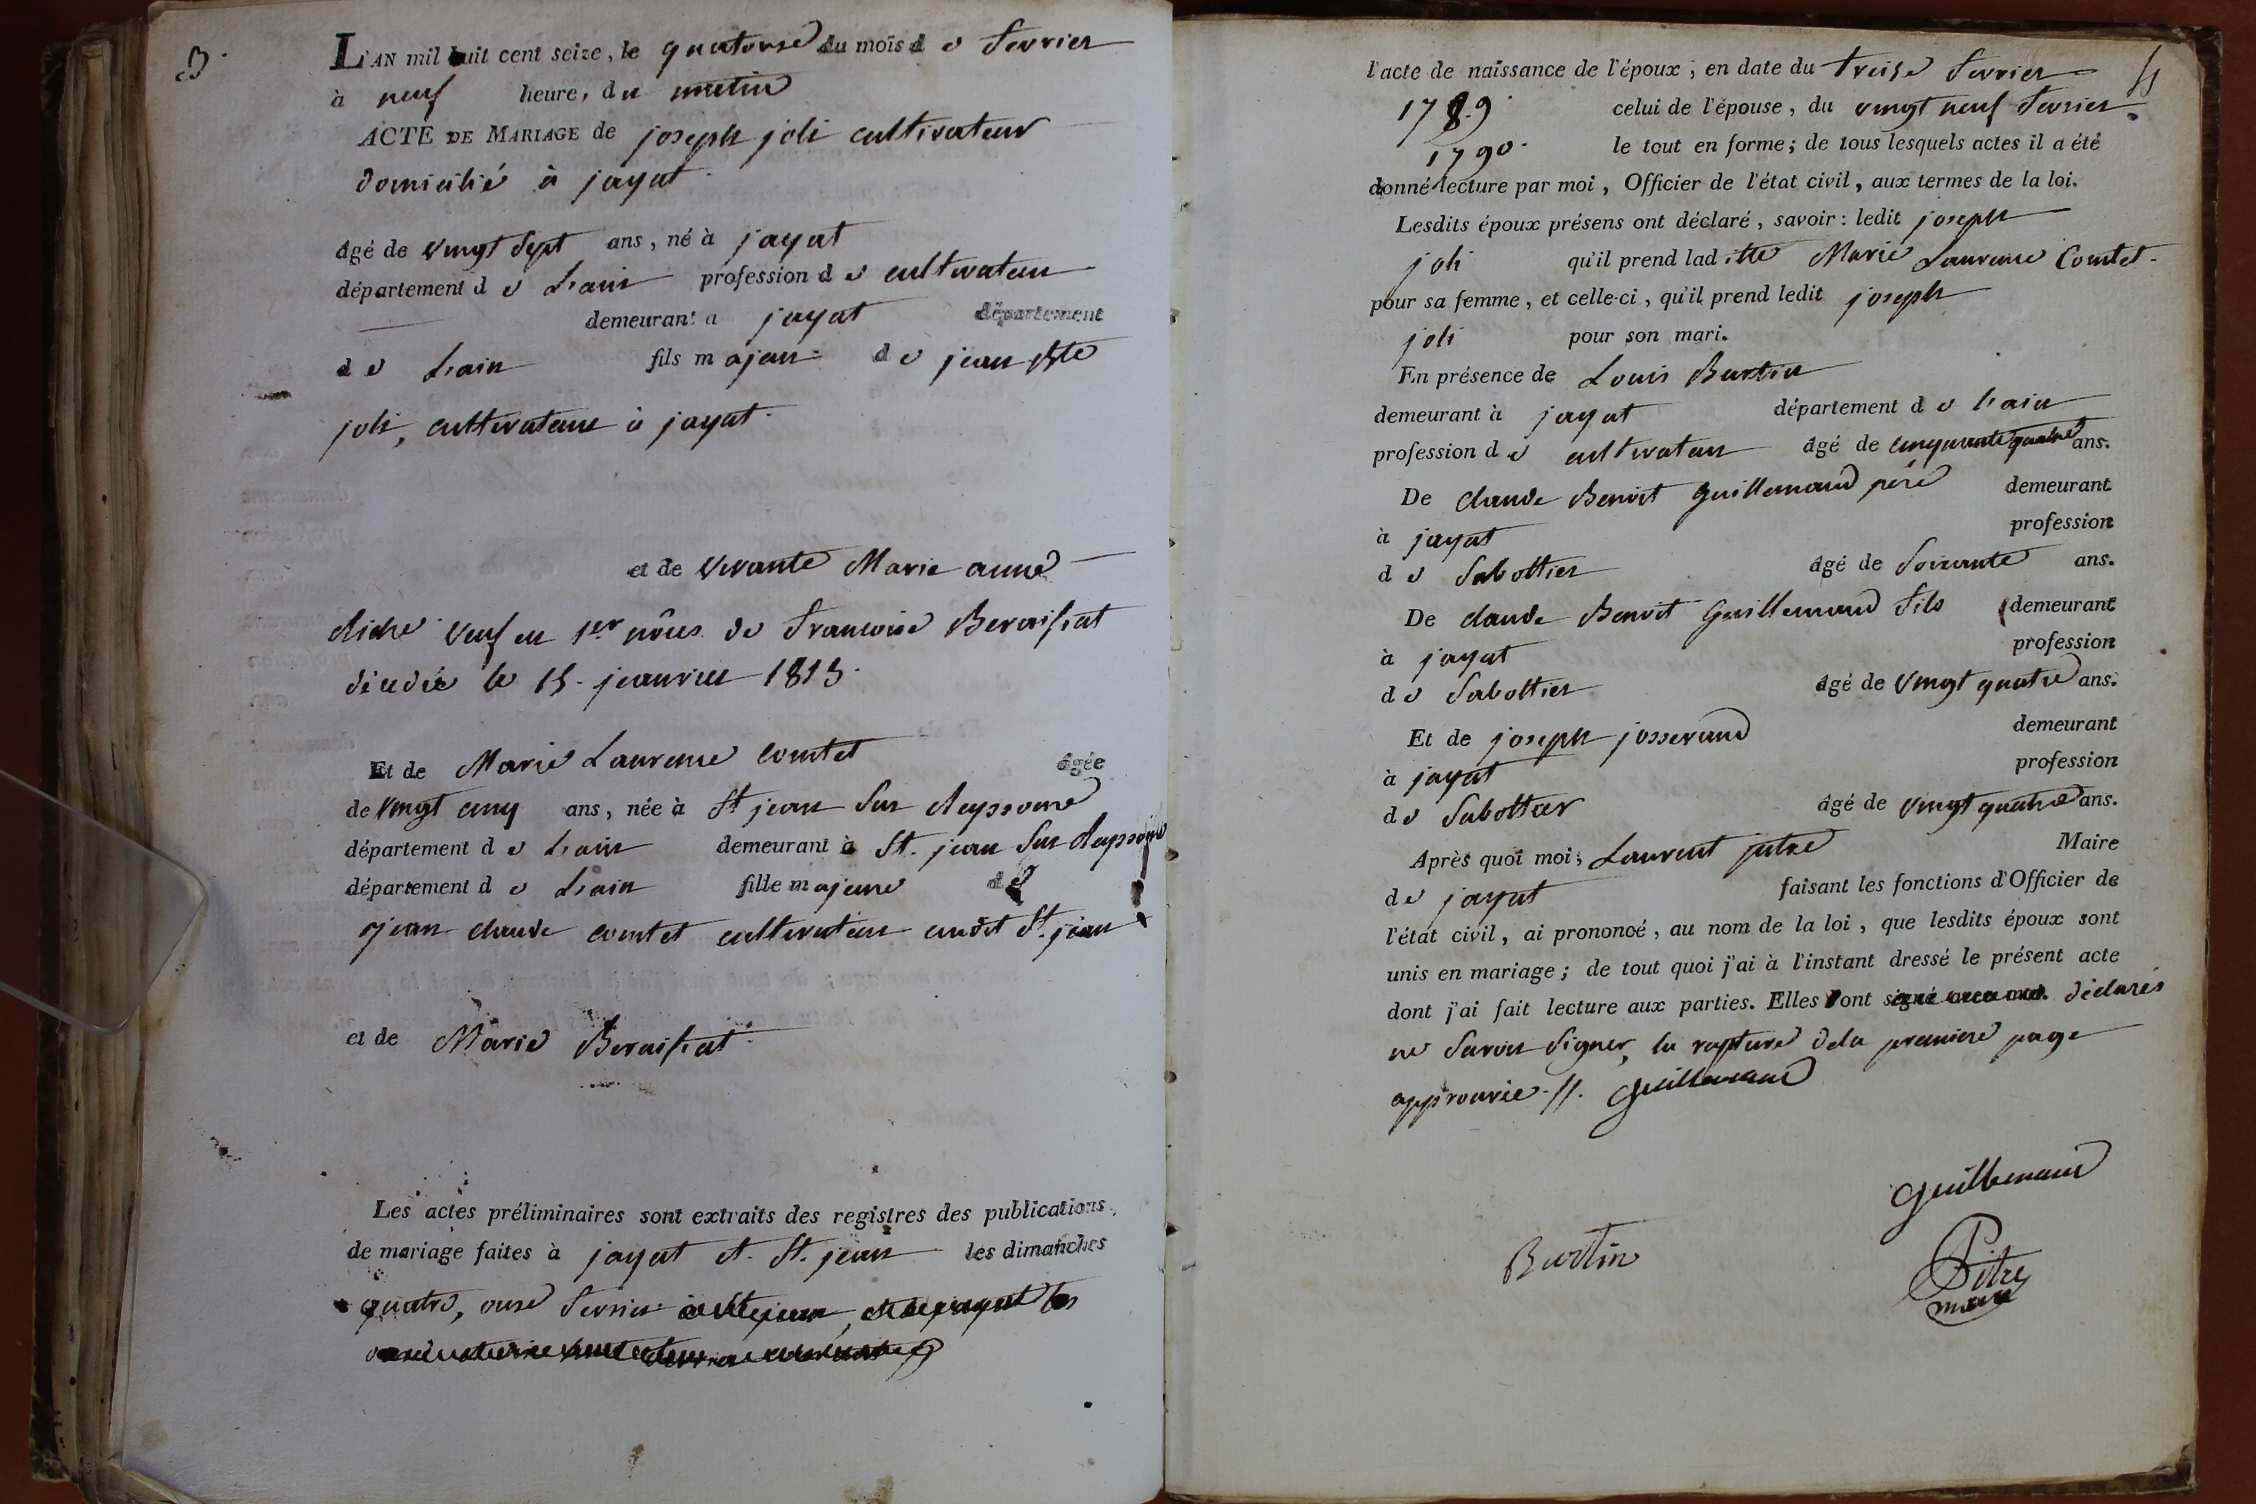 3.
L'AN mil huit cent seize, le quatorse du mois de Fevrier
à neuf heure, du matin
ACTE DE MARIAGE de joseph joli cultivateur
domicilié à jayat.
âgé de vingt Sept ans, né à jayat
département de L'ain profession de cultivateur
demeurant a jayat département
de L'ain fils majeur de jean Bte
joli, cultivateur à jayat.
et de vivante Marie anne
veuf en 1er nôces de Francoise Beraisiat
décédée le 15 janvier 1815.
Et de Marie Laurence Comtet âgée
de vingt cinq ans, née à St jean Sur Reyssouze
département de L'ain demeurant à St. jean Sur Reyssouze
département de L'ain fille majeure de
jean claude comtet cultivateur audit St. jean
et de Marie Beraisiat.
Les actes préliminaires sont extraits des registres des publications
de mariage faites à jayat et St. jean les dimanches
quatre, onse Fevrier
l'acte de naissance de l'époux, en date du treise Fevrier
1789. celui de l'épouse, du vingt neuf Fevrier
1790. le tout en forme; de tous lesquels actes il a été
donné lecture par moi, Officier de l'état civil, aux termes de la loi.
Lesdits époux présens ont déclaré, savoir: ledit joseph
joli qu'il prend laditte Marie Laurence Comtet
pour sa femme, et celle-ci, qu'il prend ledit joseph
joli pour son mari.
En présence de Louis Burtin
demeurant à jayat département de l'ain
profession de cultivateur âgé de cinquante quatre ans.
De claude Benoit Guillemaud père demeurant
à jayat profession
de Sabottier âgé de Soixante ans.
De claude Benoit Guillemaud Fils demeurant
à jayat profession
de Sabottier âgé de vingt quatre ans.
Et de joseph josserand demeurant
à jayat profession
de Sabottier âgé de vingt quatre ans.
Après quoi moi, Laurent pitre Maire
de jayat faisant les fonctions d'Officier de
l'état civil, ai prononcé, au nom de la loi, que lesdits époux sont
unis en mariage; de tout quoi j'ai à l'instant dressé le présent acte
dont j'ai fait lecture aux parties. Elles ont signé avec moi. déclarés
ne Savoir Signer, la rapture dela premiere page
approuvée.//. Guillemaud
Guillemaud
Burtin
Pitre
maire